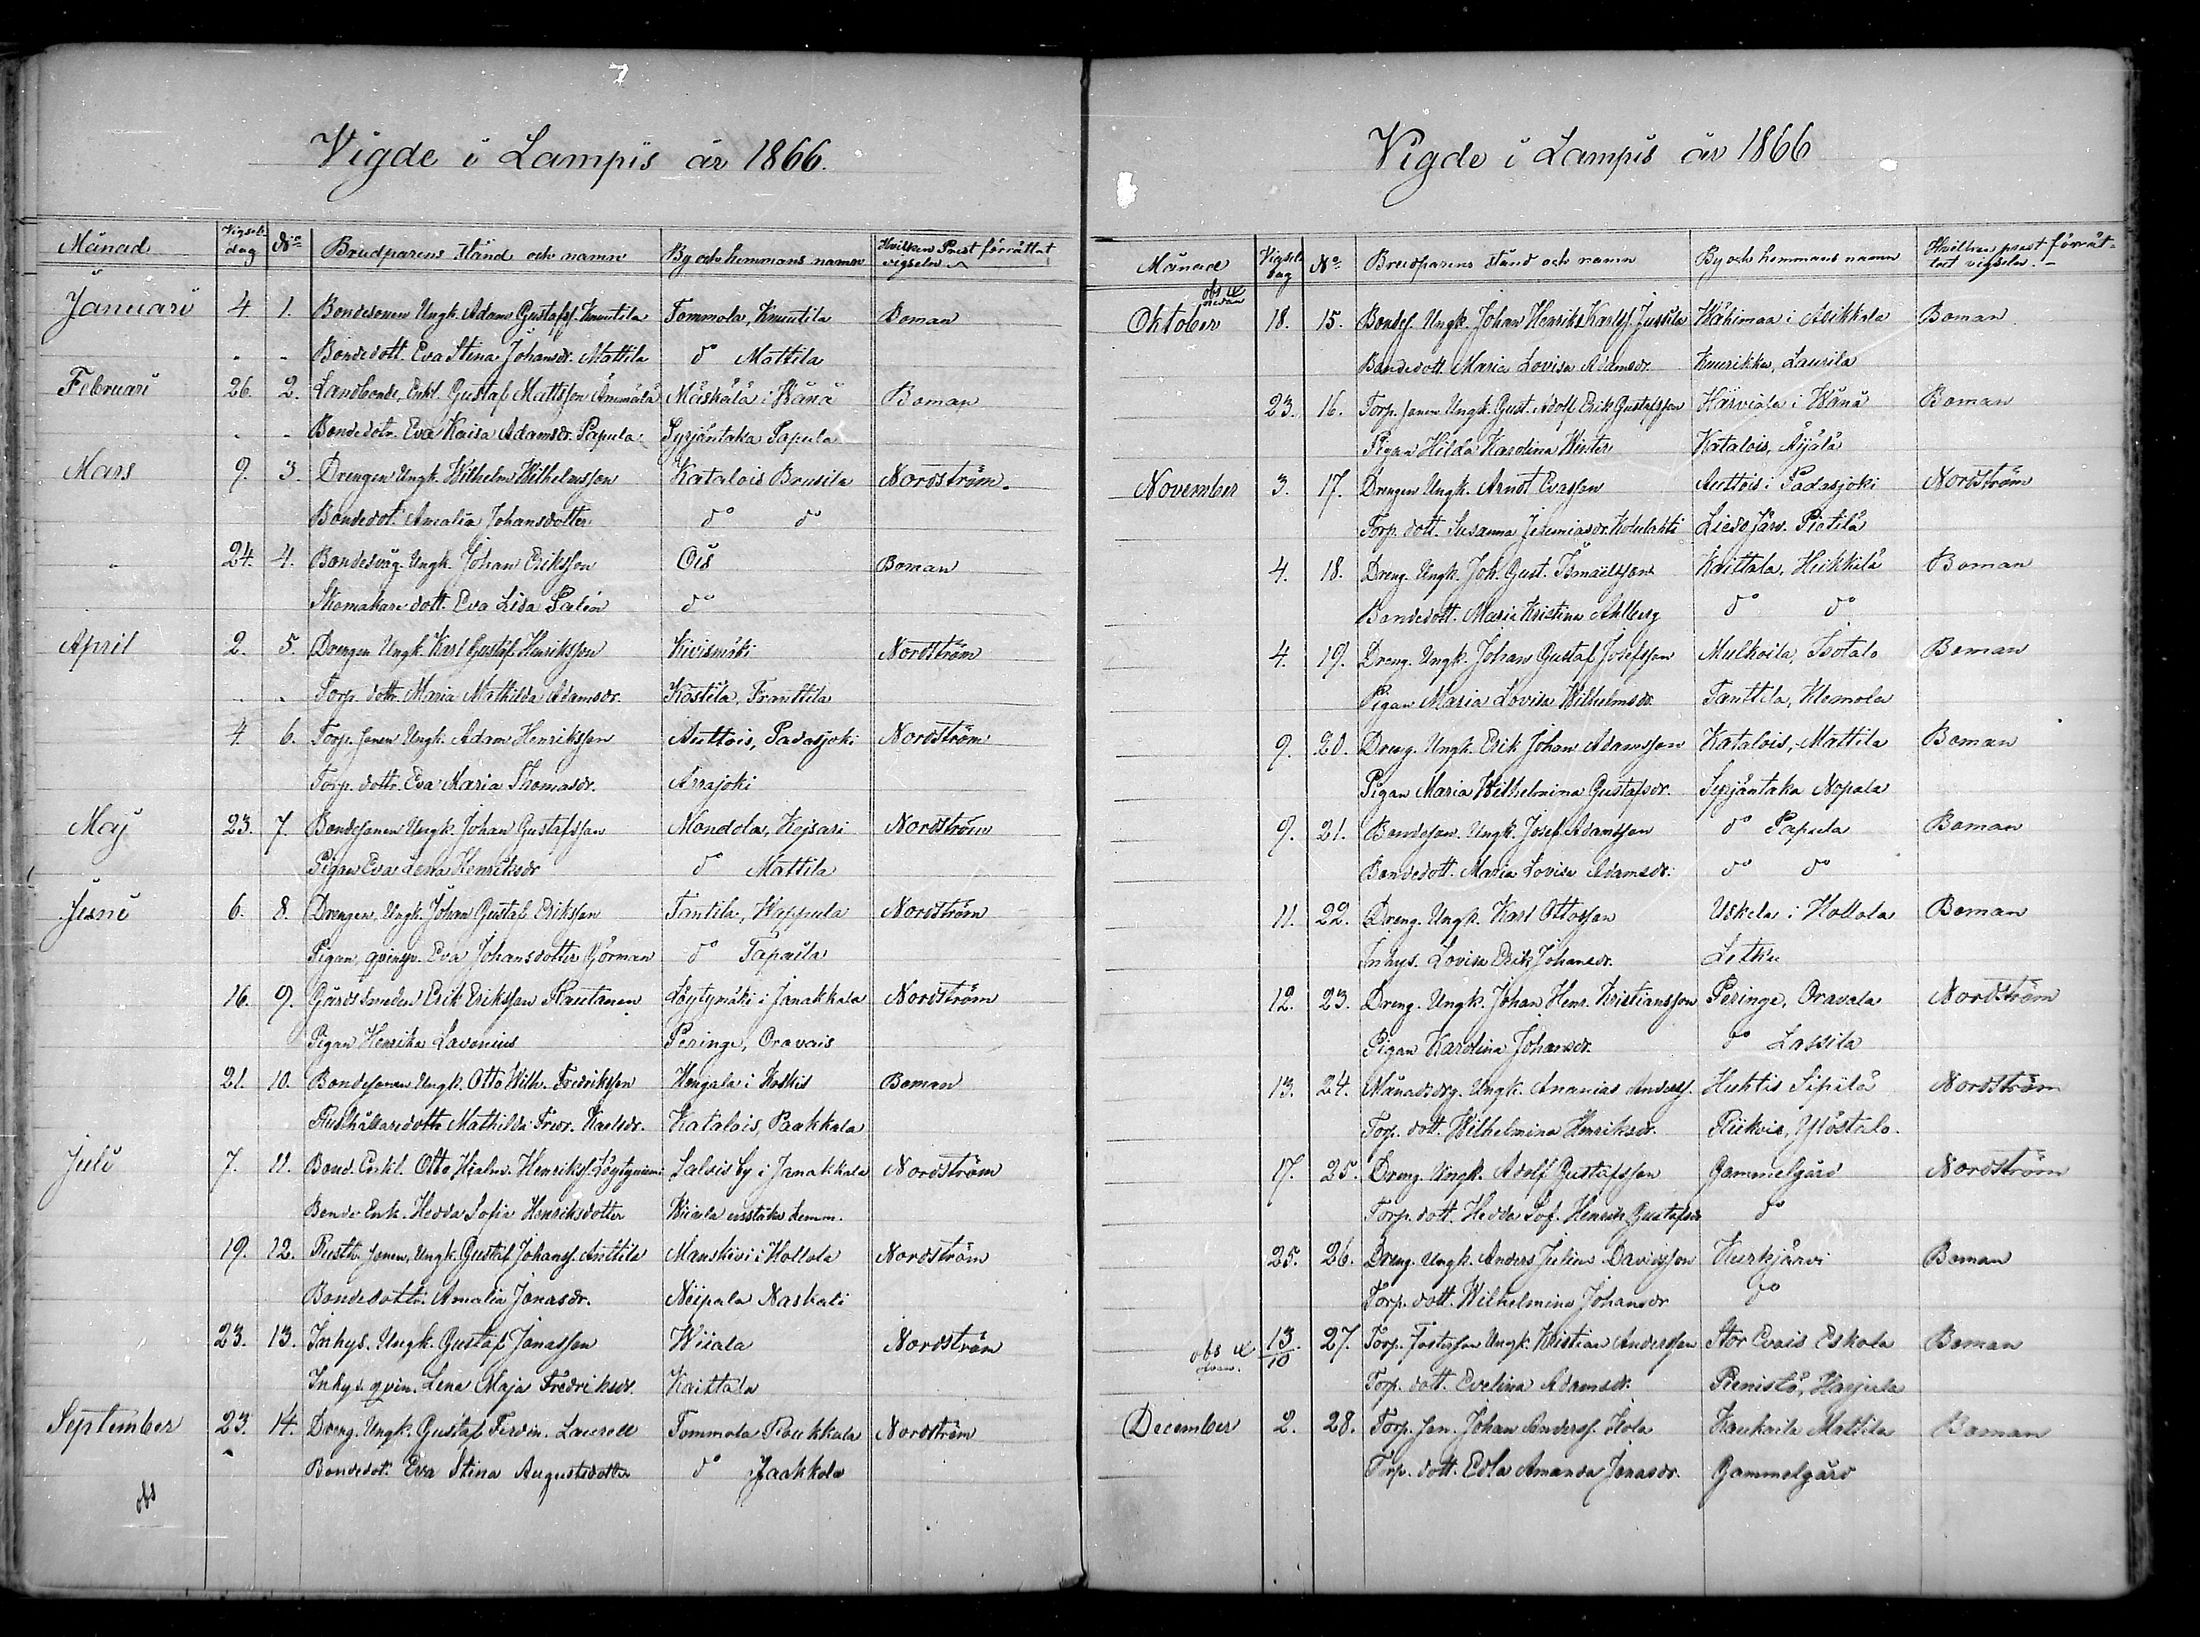 Vigde i Lampis år 1866.
Månad Vigsel dag No Brudparens stånd och namn By och hemmans namn Hvilken Prest förrättat vigseln
Januari 4 1. Bondesonen Ungk. Adam Gustafss. Knuutila Tommola, Knuutila Boman
" " Bondedott. Eva Stina Johansdr. Mattila do Mattila
Februari 26. 2. Landbonde, Enkl. Gustaf Mattsson Ämmälä Mäskälä i Wånå Boman
" " Bondedotr. Eva Kaisa Adamsdr. Papula Syrjäntaka Papula
Mars 9. 3. Drengen Ungk. Wilhelm Wilhelmsson Katalois Brusila Nordström.
Bondedot. Amalia Johansdotter do do
" 24. 4. Bondesvåg. Ungk. Johan Eriksson Ois Boman
Skomakare dott. Eva Lisa Palin do
April 2. 5. Drengen Ungk. Karl Gustaf Henriksson Kivismäki Nordström
" " Torp. dottr. Maria Mathilda Adamsdr. Kostila, Franttila
4. 6. Torp. sonen Ungk. Adam Henriksson Auttois, Padasjoki Nordström
Torp. dottr. Eva Maria Thomasdr. Arrajoki
Maj 23. 7. Bondesonen Ungk. Johan Gustafsson Mondola, Kejsari Nordström
Pigan Eva Lena Henriksdr do Mattila
Juni 6. 8. Drengen, Ungk. Johan Gustaf Eriksson Tantila, Wappula Nordström
Pigan, qvinsp. Eva Johansdotter Görman do Tapaila
16. 9. Gårdssmeden Erik Eriksson Rautanen Löytymäki i Janakkala Nordström
Pigan Henrika Lavonius Peringe, Oravais
21. 10. Bondesonen Ungk. Otto Wilh. Fredriksson Wengala i Koskis Boman
Rusthållaredotter Mathilda Fredr. Karlsdr. Katalois, Paakkala
Juli 7. 11. Bond. Enkl. Otto Hialm. Henrikss. Löytyniemi Salois by i Janakkala Nordström
Bonde Enk. Hedda Sofia Henriksdotter Wiiala enstaka hemm.
19. 12. Rusth. sonen, Ungk. Gustaf Johanss. Anttila Manskivi i Hollola Nordström
Bondedottr. Amalia Jonasdr. Niipala Naskali
23. 13. Inhys. Ungk. Gustaf Jonasson Wiiala Nordström
Inhys. qvin. Lena Maja Fredriksdr. Kaittala
September 23. 14. Dreng. Ungk. Gustaf Ferdin. Laurell Tommola Roukkula Nordström
Bondedot. Eva Stina Augustsdotter do Jaakkola
obs
Vigde i Lampis år 1866
Månad Vigsel dag No Brudparens stånd och namn By och hemmans namn Hvilken prest förrättat vigseln.
obs nedan
Oktober 18. 15. Bondes. Ungk. Johan Henrik Karlss. Jussila Wähimaa i Asikkala Boman
Bondedott. Maria Lovisa Adamsdr. Kuurikka, Laurila
23. 16. Torp. sonen Ungk. Gust. Adolf Erik Gustafsson Harviala i Wånå Boman
Pigan Hilda Karolina Wester Katalois, Äijälä
November 3. 17. Drengen Ungk. Arnot Evasson Auttois i Padasjoki Nordström
Torp. dott. Susanna Jeremiasdr. Kotulahti Lieso Järv. Pietilä
4. 18. Dreng. Ungk. Joh. Gust. Ismaëlsson Kaittala, Heikkilä Boman
Bondedott. Maria Kristina Ahlberg do do
4. 19. Dreng. Ungk. Johan Gustaf Josefsson Mulkoila, Isotalo Boman
Pigan Maria Lovisa Wilhelmsdr. Tanttila, Klemola
9. 20. Dreng. Ungk. Erik Johan Adamsson Katalois, Mattila Boman
Pigan Maria Wilhelmina Gustafsdr. Syrjäntaka Nopala
9. 21. Bondeson. Ungk. Josef Adamsson do Papula Boman
Bondedott. Maria Lovisa Adamsdr. do do
11. 22. Dreng. Ungk. Karl Ottosson Uskela i Hollola Boman
Inhys. Lovisa Erik Johansdr. Lethu
12. 23. Dreng. Ungk. Johan Henr. Kristiansson Peringe, Oravala Nordström
Pigan Karolina Johansdr. do Lassila
13. 24. Månadsdrg. Ungk. Ananias Anderss. Huhtis Sipilä Nordström
Torp. dott. Wilhelmina Henriksdr. Riikvia, Ylöstalo.
17. 25. Dreng. Ungk. Adolf Gustafsson Gammelgård Nordström
Torp. dott. Hedda Sof. Henrik Gustafsdr do
25. 26. Dreng. Ungk. Anders Julius Davidsson Kurkjärvi Boman
Torp. dott. Wilhelmina Johansdr do
obs ofvan. 13/10 27. Torp. Fosterson Ungk. Kristian Andersson Stor Evais Eskola Boman
Torp. dott. Evelina Adamsdr. Pienistö, Harjula
December 2. 28. Torp. son. Johan Anderss. Isola Kaukaila Mattila Boman
Torp. dott. Edla Amanda Jonasdr. Gammelgård